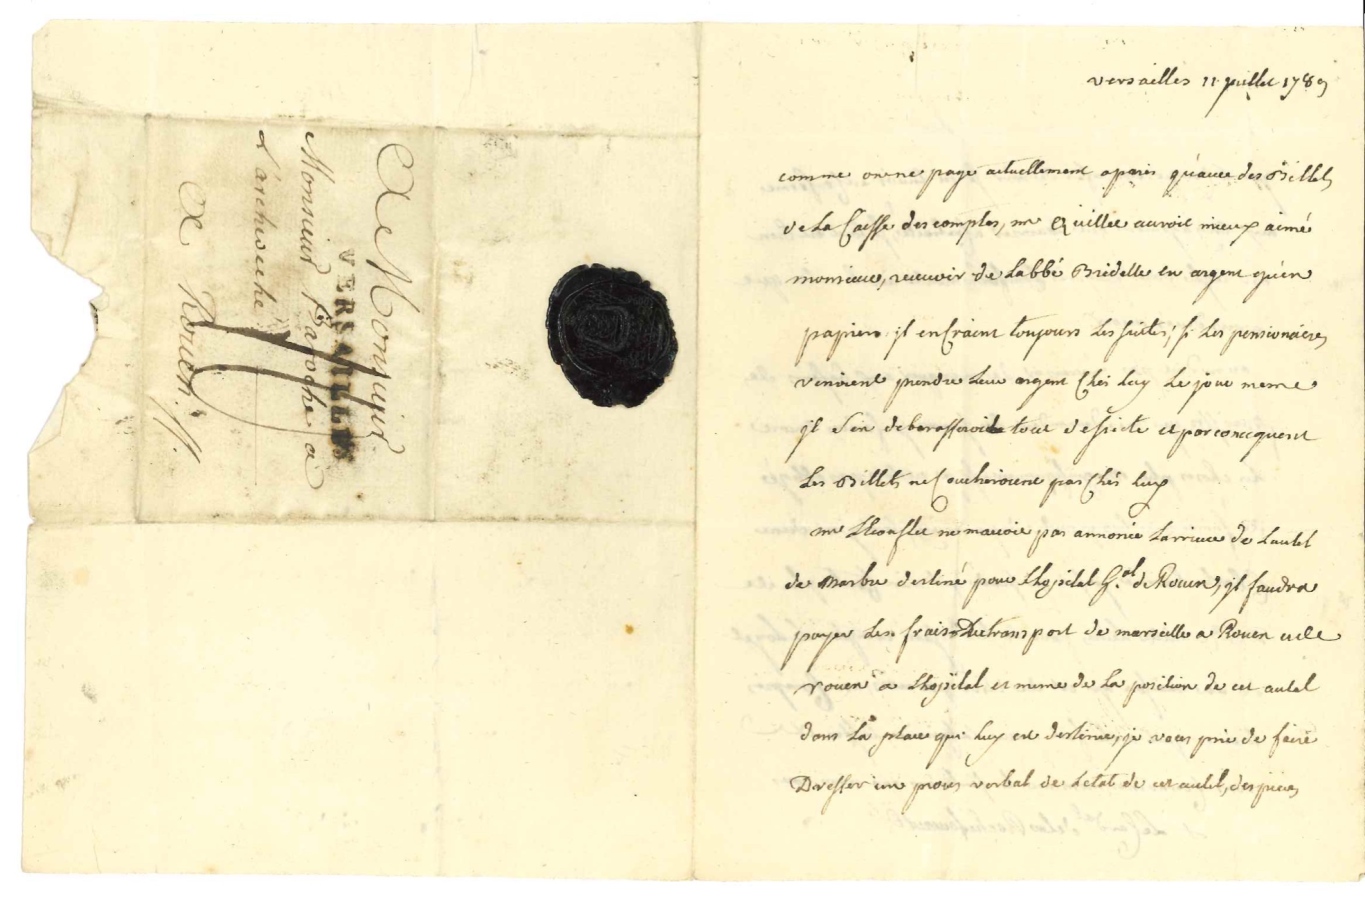 A Monsieur
Monsieur Baroche a
L'archeveché
A Rouen
VERSAILLES
versailles 11 juillet 1789
comme on ne paye actuellement a paris qu'avec des Billets
de La Caisse descomptes, mr Quillet auroit mieux aimé
monsieur, recevoir de Labbé Bridelle en argent qu'en
papier. jl en Craint toujours Les suites; si Les pensionaires
venoient prendre Leur argent Chés Luy Le jour meme
jl s'en debarasseroit tout desuite et par consequent
Les Billets ne Coucheroient pas Chés Luy
mr ne mavoit pas annoncé Larrivée de Lautel
de Marbre destiné pour Lhopital G.al de Rouen, jl faudra
payer Les frais de transport de marseille a Rouen et de
rouen a Lhopital et meme de La position de cet autel
dans La place qui Luy est destinée, je vous prie de faire
Dresser un procés verbal de Létat de cet autel, des pieces